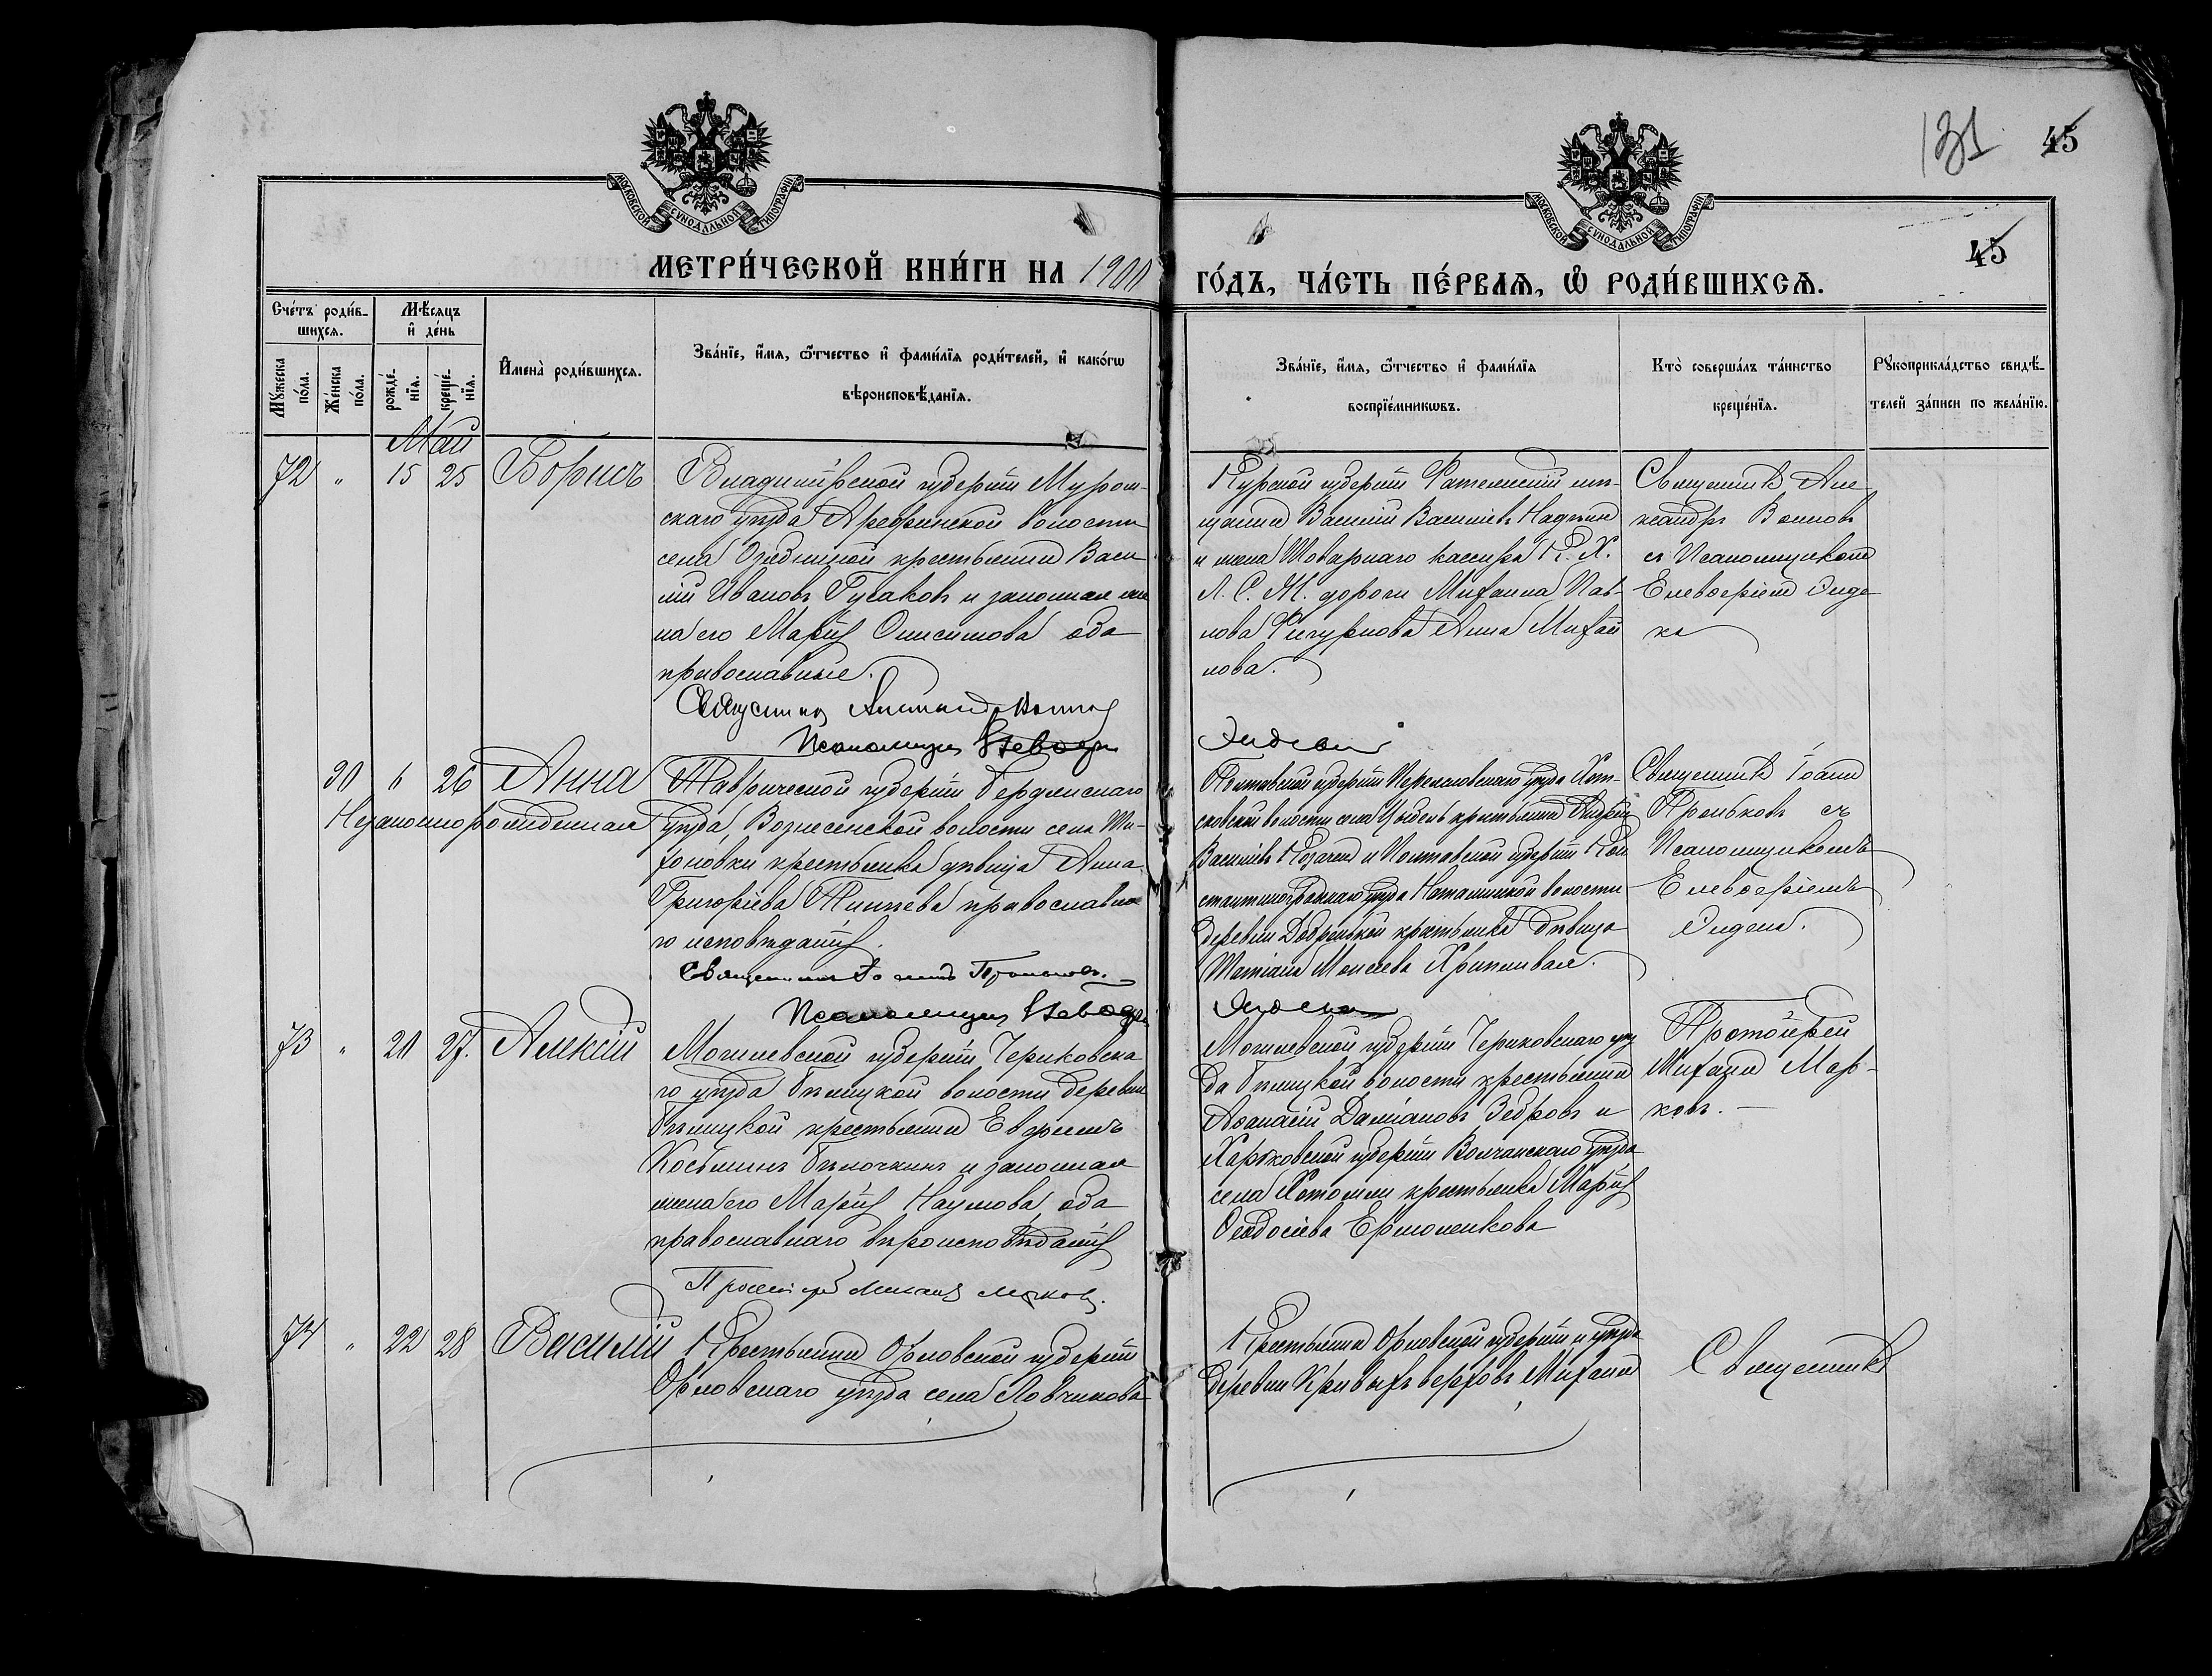 131 45
МОСКОВСКОЙ СѴНОДАЛЬНОЙ ТИПОГРАФІИ
МОСКОВСКОЙ СѴНОДАЛЬНОЙ ТИПОГРАФІИ
45
МЕТРИ́ЧЕСКОЙ КНИ́ГИ НА 1900 ГО́ДЪ, ЧА́СТЬ ПЕ́РВАѦ, Ѽ РОДИ́ВШИХСѦ.
Сче́тъ роди́в-
шихсѧ.
Мѣ́сѧцъ
и҆ де́нь
Мꙋ́жеска по́ла.
Же́нска по́ла.
рожде́-нїѧ.
креще́-нїѧ.
И҆мена̀ роди́вшихсѧ.
Зва́нїе, и҆́мѧ, ѻ҆́тчество и҆ фами́лїѧ роди́телей, и҆ како́гѡ
вѣроисповѣ́данїѧ.
Зва́нїе, и҆́мѧ, ѻ҆́тчество и҆ фами́лїѧ
воспрїе́мникѡвъ.
Кто̀ соверша́лъ та́инство
креще́нїѧ.
Рꙋкоприкла́дство свидѣ́-
телей за́писи по жела́нїю.
Май
72 " 15 25 Борисъ
Владимірской губерніи Муром-
скаго уѣзда Арефинской волости
села крестьянинъ Васи
лій Ивановъ Гусаковъ и законная же
на его Марія Онисимова оба
православные.
Священникъ Александръ Воинов
Псаломщикъ Елевферій
Курской губерніи Фатежскій мѣ-
щанинъ Василій Васильевъ
и жена Товарнаго кассира К. Х.
А. С. Ж. дороги Михаила Пав-
лова Анна Михаи
лова.
Священникъ Але
ксандръ Воиновъ
съ Псаломщикомъ
Елевферіемъ
30 " 26 Анна
Незаконнорожденная
Таврической губерніи Бердянскаго
уѣзда, Вознесенской волости села
крестьянка дѣвица Анна
Григорьева православна
го исповѣданія.
Священникъ Іоаннъ Проньковъ.
Псаломщикъ Елевферій
Полтавской губерніи Переяславскаго уѣзда
волости села крестьянинъ Андрей
Васильевъ и Полтавской губерніи Кон
стантиноградскаго уѣзда волости
деревни крестьянка дѣвица
Татіана Моисеева
Священникъ Іоаннъ
Проньковъ съ
Псаломщикомъ
Елевферіемъ
73 " 20 27. Алексій
Могилевской губерніи Чериковска
го уѣзда Бѣлицкой волости деревни
Бѣлицкой крестьянинъ Евфимъ
Косьминъ Бѣлочкинъ и законная
жена его Марія Наумова, оба
православнаго вѣроисповѣданія
Протоіерей Михаилъ Марков.
Могилевской губерніи Чериковскаго уѣз
да Бѣлицкой волости крестьянинъ
Аѳанасій Даміановъ Зебровъ и
Харьковской губерніи Волчанскаго уѣзда
села Хотомли крестьянка Марія
Ѳеодосіева Ермоленкова
Протоіерей
Михаилъ Мар-
ковъ.
74 " 22 28 Василій
Крестьянинъ Орловской губерніи
Орловскаго уѣзда села Ловчикова
Крестьянинъ Орловской губерніи и уѣзда
деревни Кривыхъ верховъ Михаилъ
Священникъ